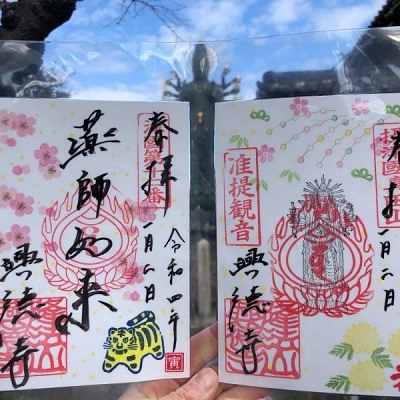 奉拝
令和四年
一月二日
薬師如来
興徳寺
寅
奉拝
一月二日
准提観音
興徳寺